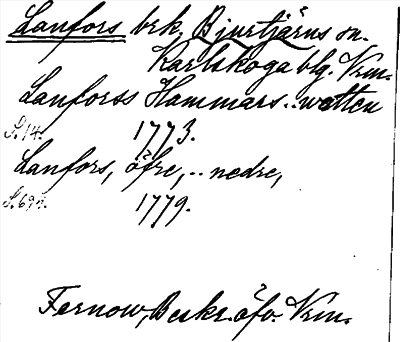 Lanfors brk, Bjurtjärns sn.
Karlskoga blg. Vrm.
Lanforss Hammars..watten
S. 14. 1773.
Lanfors, öfre, .. nedre,
1779.
Fernow, Beskr. öfv. Vrm.